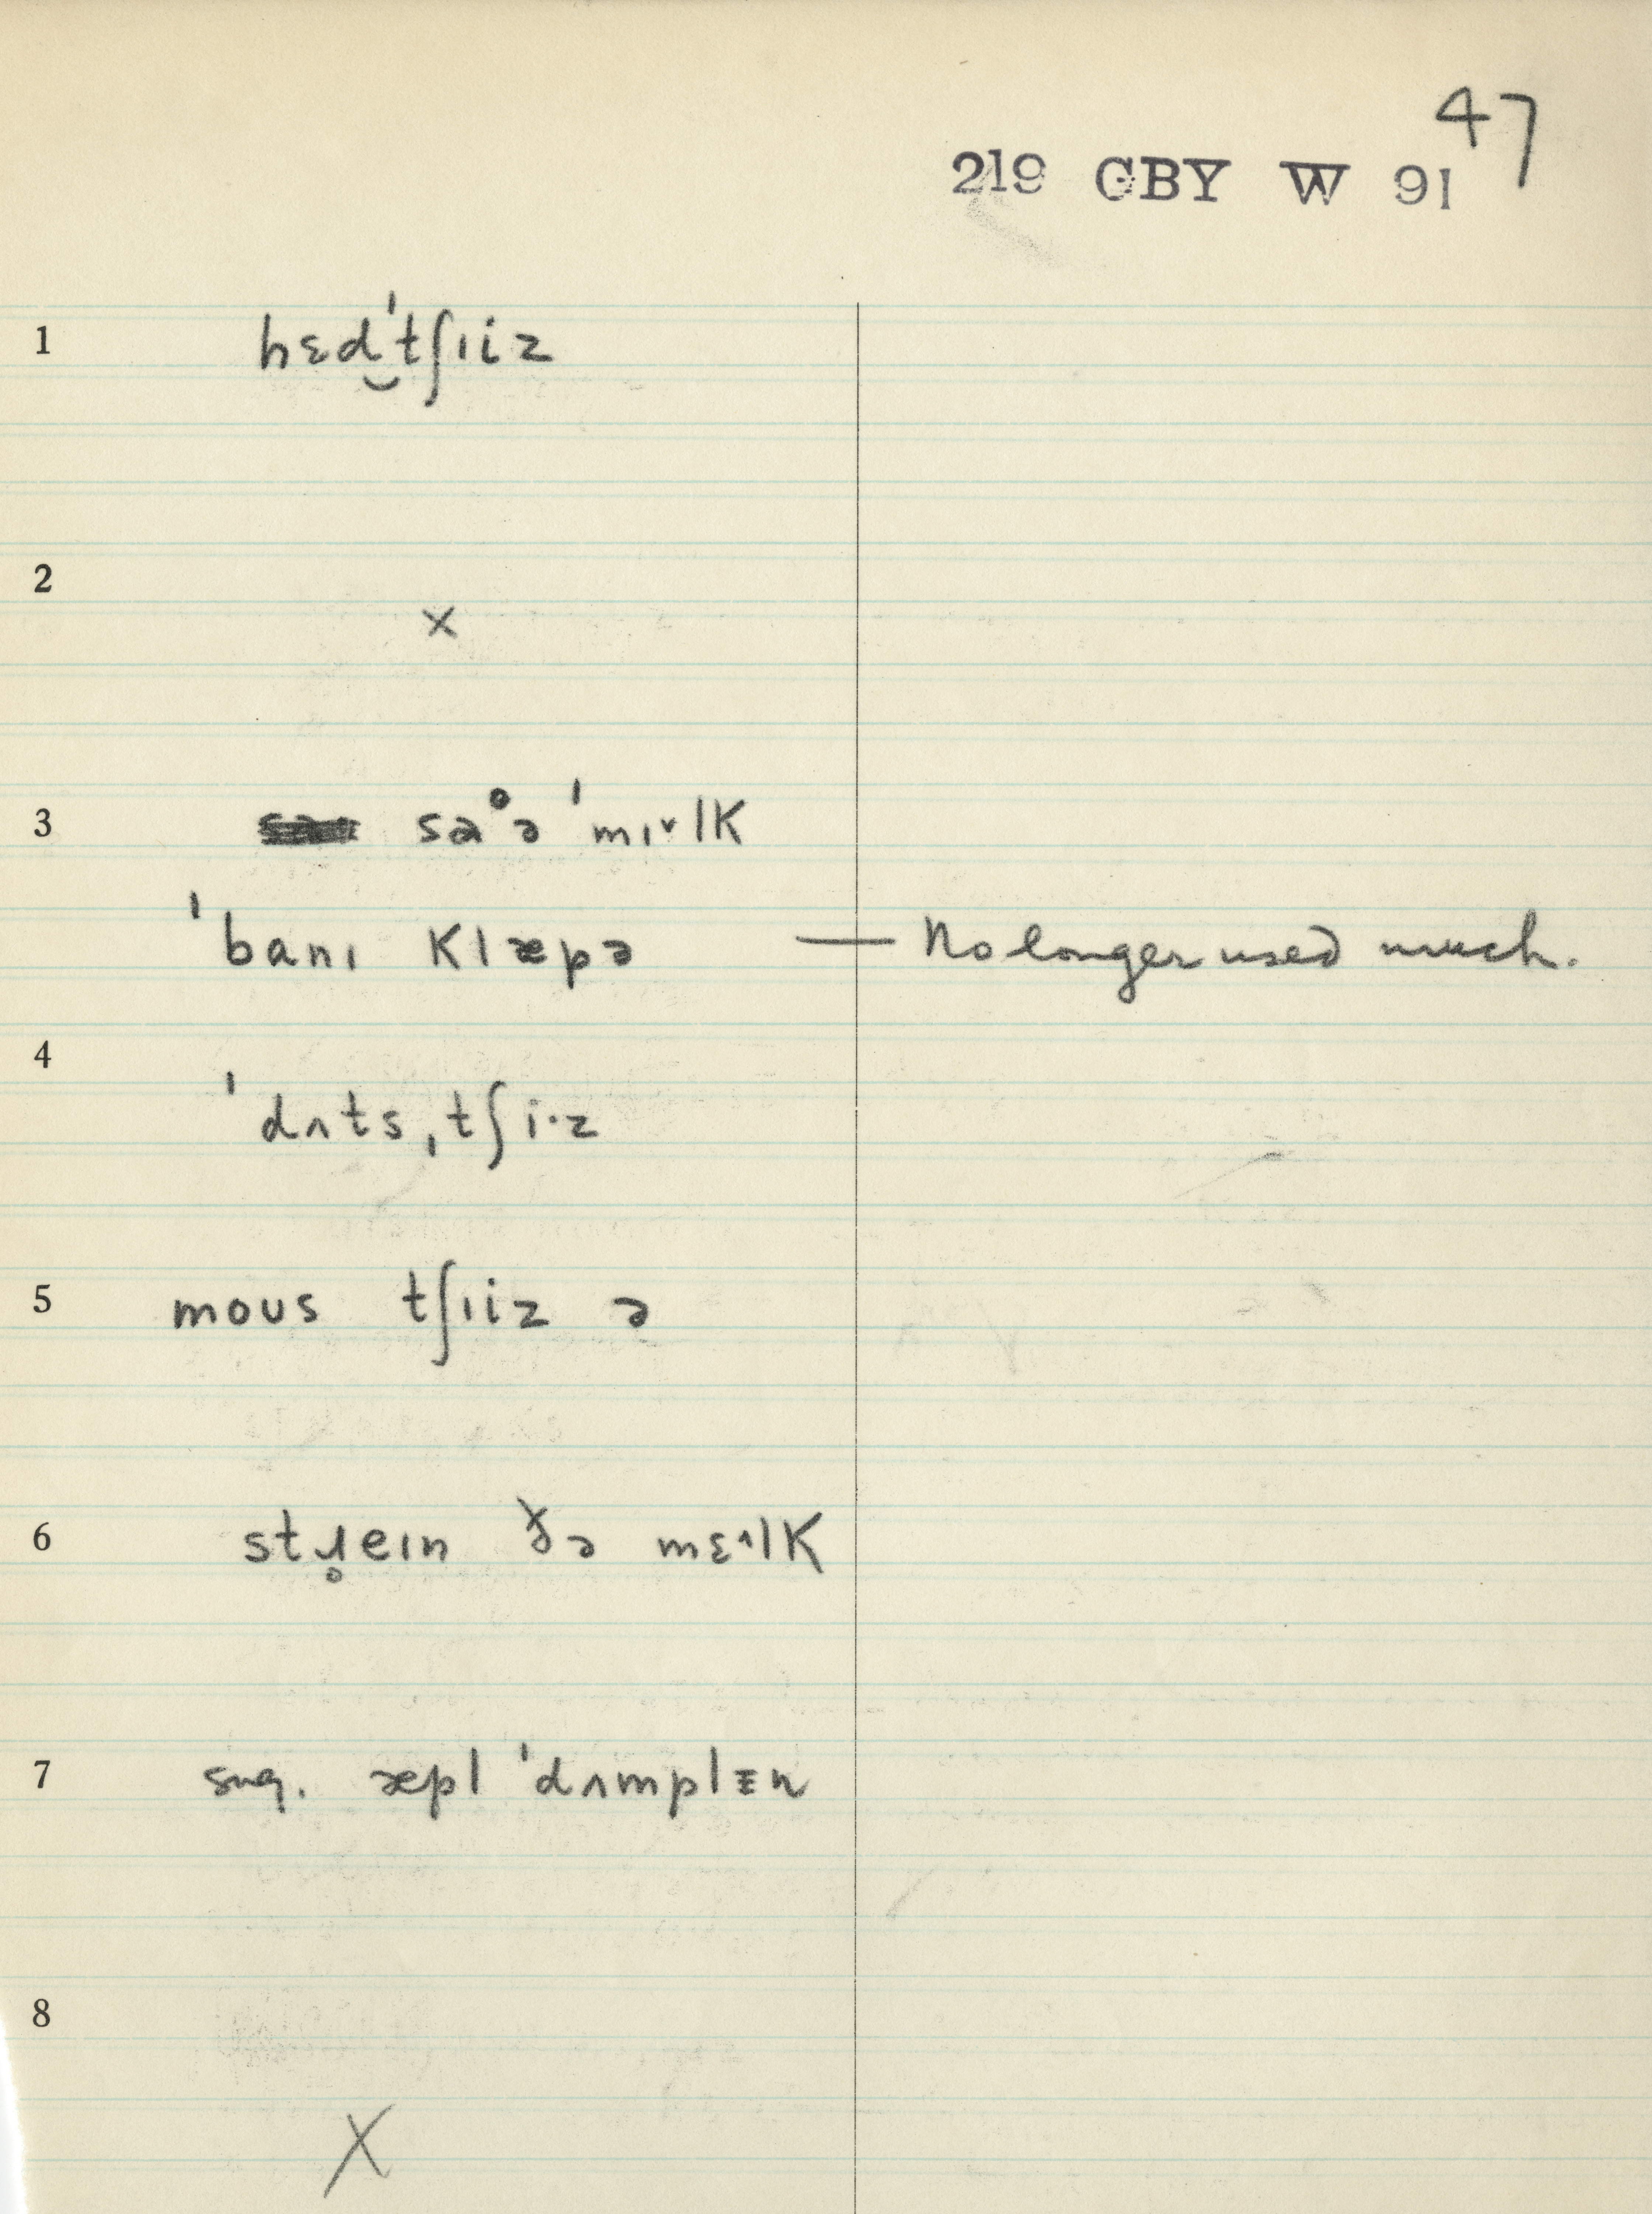 47
219 GBY W 91
1 hɛd‿ˈtʃɪiz
2 ×
3 saᵒə ˈmɪ˅lK
ˈbanɪ Klæpə — No longer used much.
4 ˈdʌtsˌtʃi·z
5 moʊs tʃɪiz ə
6 stɹ̥eɪn ðə mɛ˄lK
7 sug. æpl ˈdʌmplɪn
8 X